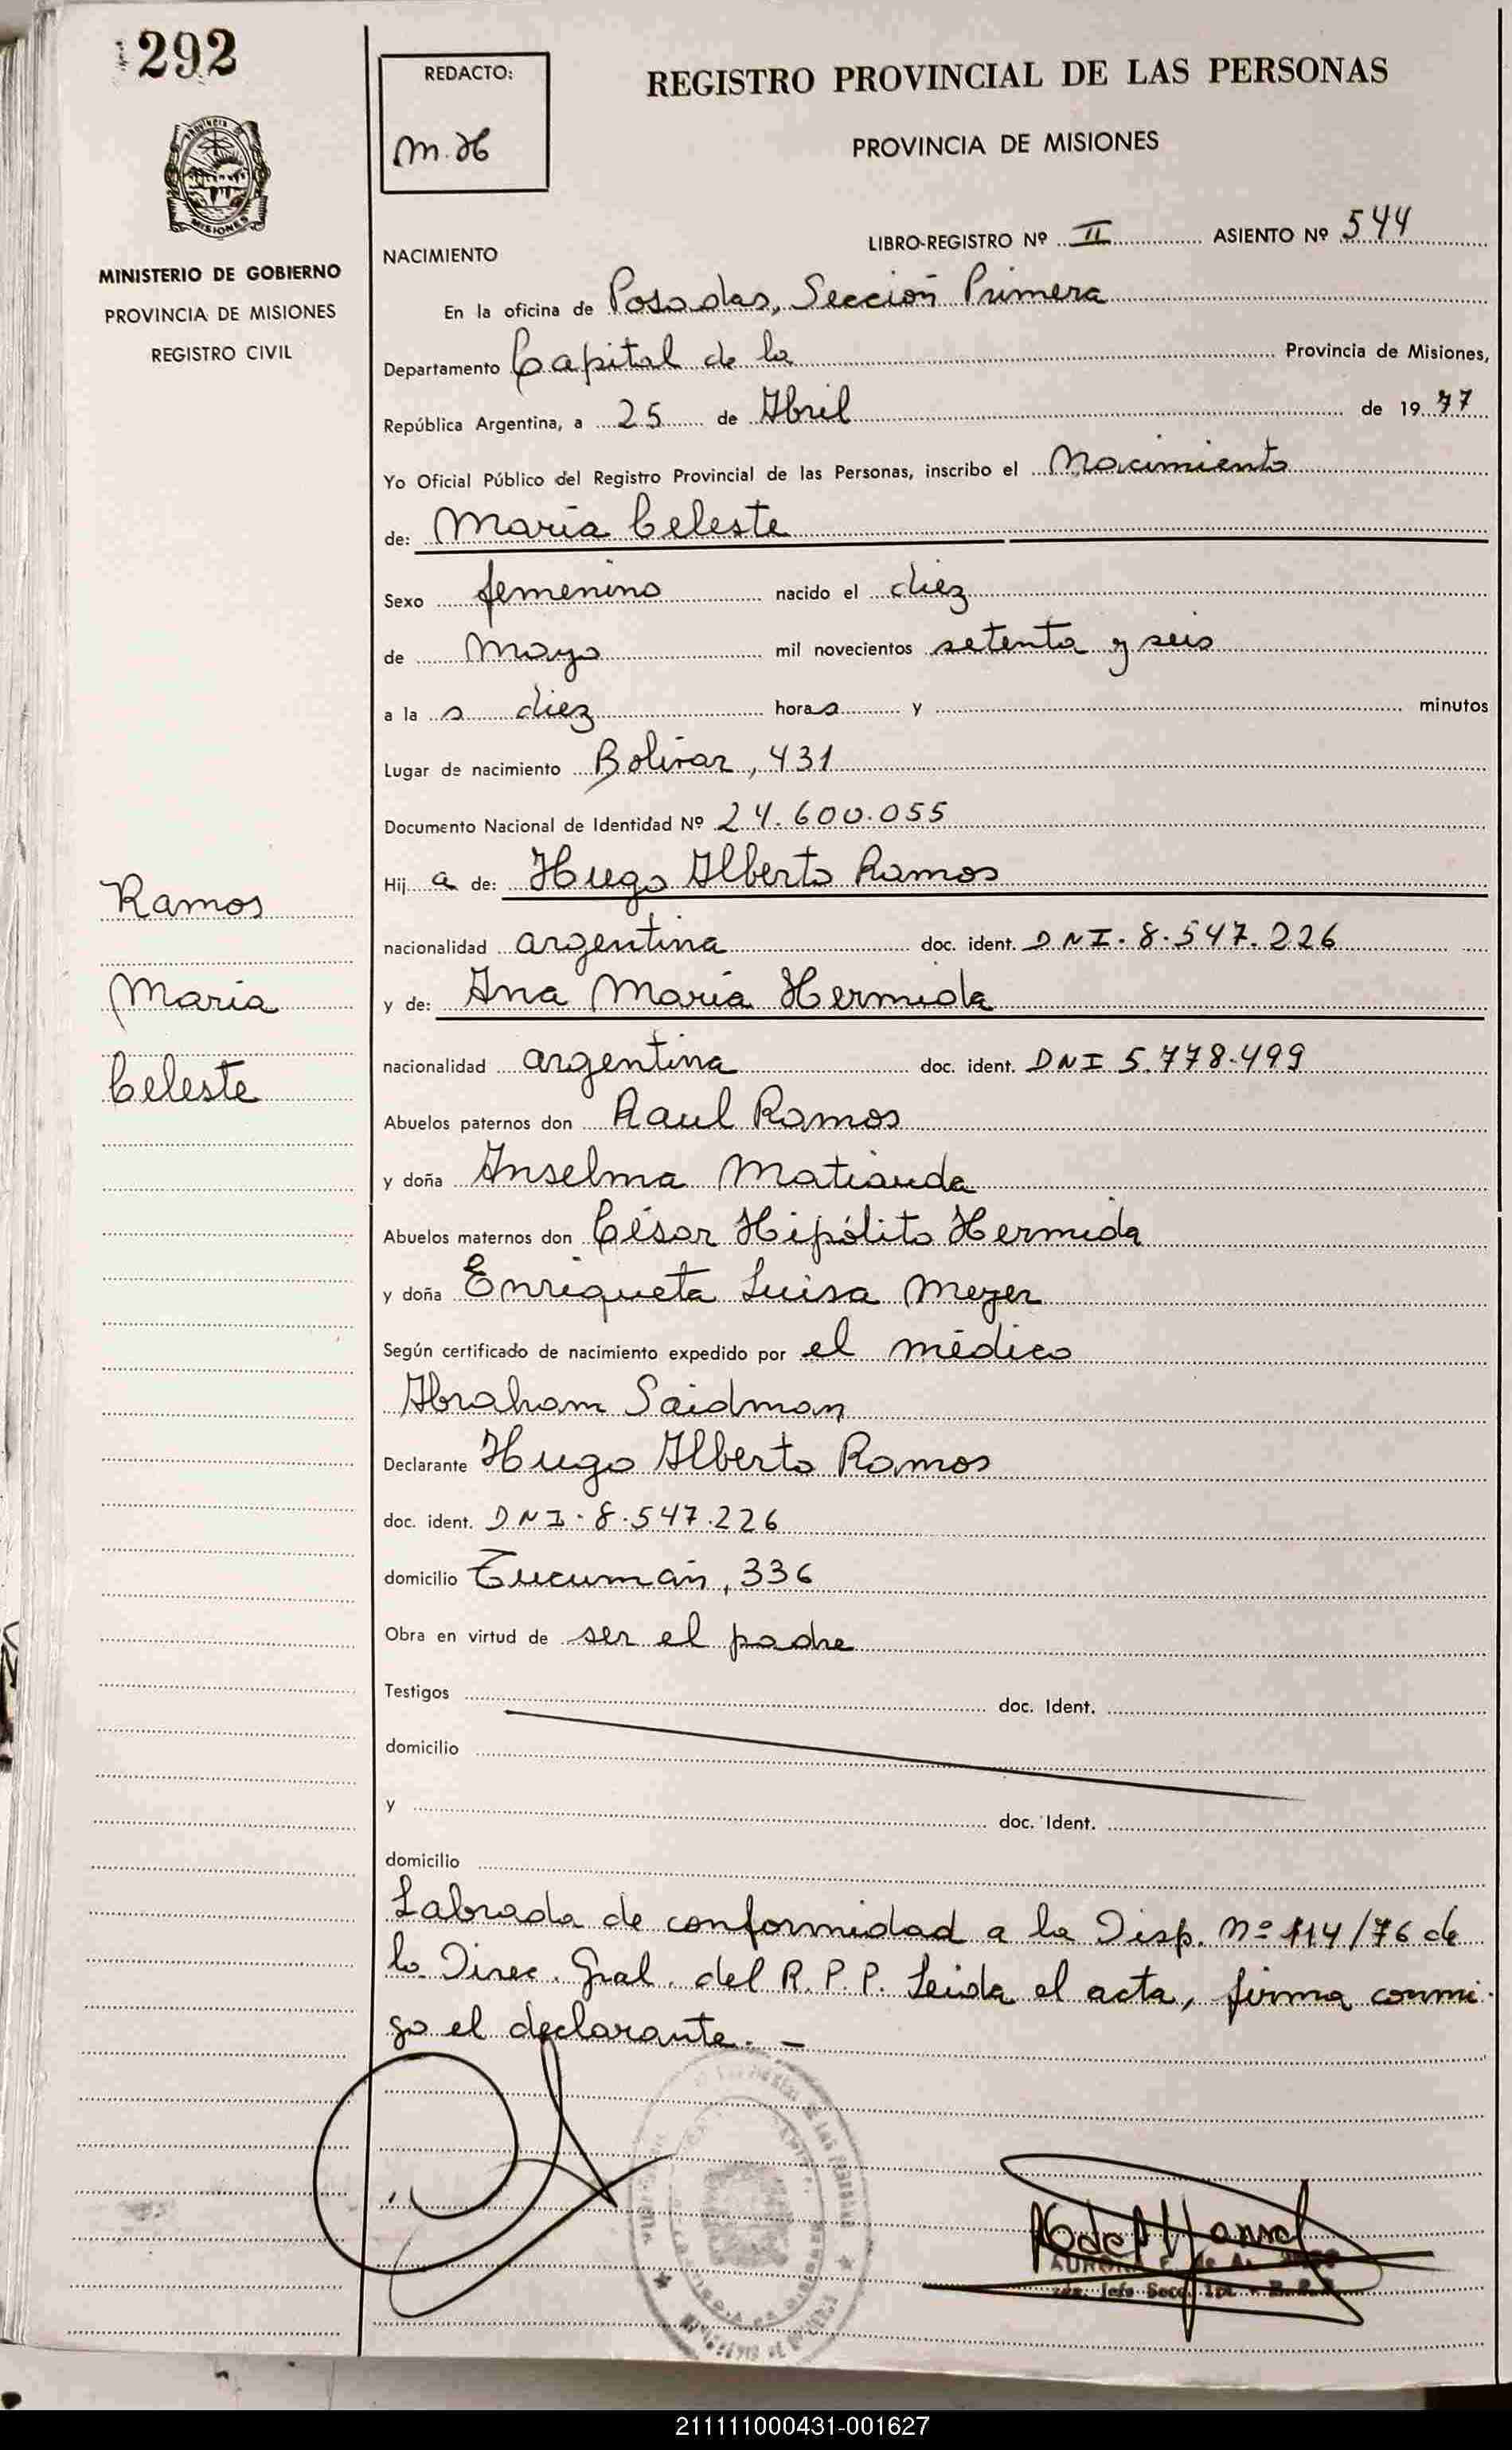 292
REDACTO:
M.H
REGISTRO PROVINCIAL DE LAS PERSONAS
PROVINCIA DE MISIONES
MISIONES
MINISTERIO DE GOBIERNO
PROVINCIA DE MISIONES
REGISTRO CIVIL
NACIMIENTO
LIBRO-REGISTRO Nº II ASIENTO Nº 544
En la oficina de Posadas, Sección Primera
Departamento Capital de la Provincia de Misiones,
República Argentina, a 25 de Abril de 1977
Yo Oficial Público del Registro Provincial de las Personas, inscribo el Nacimiento
de: María Celeste
Sexo femenino nacido el diez
de Mayo mil novecientos setenta y seis
a la s diez horas y minutos
Lugar de nacimiento Bolívar, 431
Documento Nacional de Identidad Nº 24.600.055
Hij a de: Hugo Alberto Ramos
nacionalidad argentina doc. ident. DNI. 8.547.226
y de: Ana María Hermida
nacionalidad argentina doc. ident. DNI 5.778.499
Abuelos paternos don Raul Ramos
y doña Anselma Matiauda
Abuelos maternos don César Hipólito Hermida
y doña Enriqueta Luisa Meyer
Según certificado de nacimiento expedido por el médico
Abraham Saidman
Declarante Hugo Alberto Ramos
doc. ident. DNI. 8.547.226
domicilio Tucumán, 336
Obra en virtud de ser el padre
Testigos doc. Ident.
domicilio
y doc. Ident.
domicilio
Labrada de conformidad a la Disp. Nº 114/76 de
la Direc. Gral. del R.P.P. Leida el acta, firma conmi-
go el declarante. -
Ramos
María
Celeste
211111000431-001627